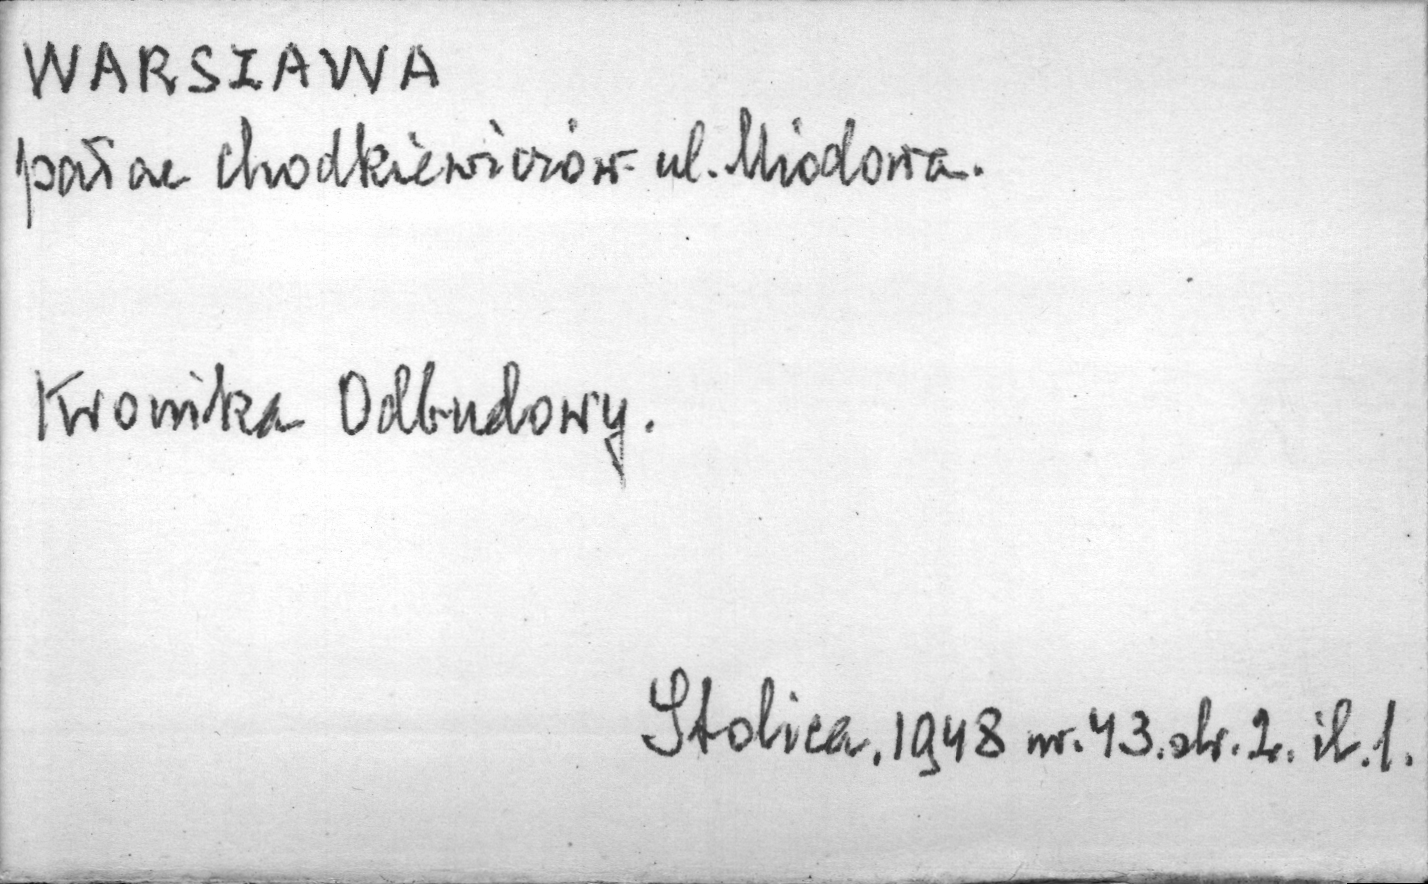 WARSZAWA
pałac Chodkiewiczów ul. Miodowa.
Kronika Odbudowy.
Stolica, 1948 nr. 43. str. 2. il. 1.